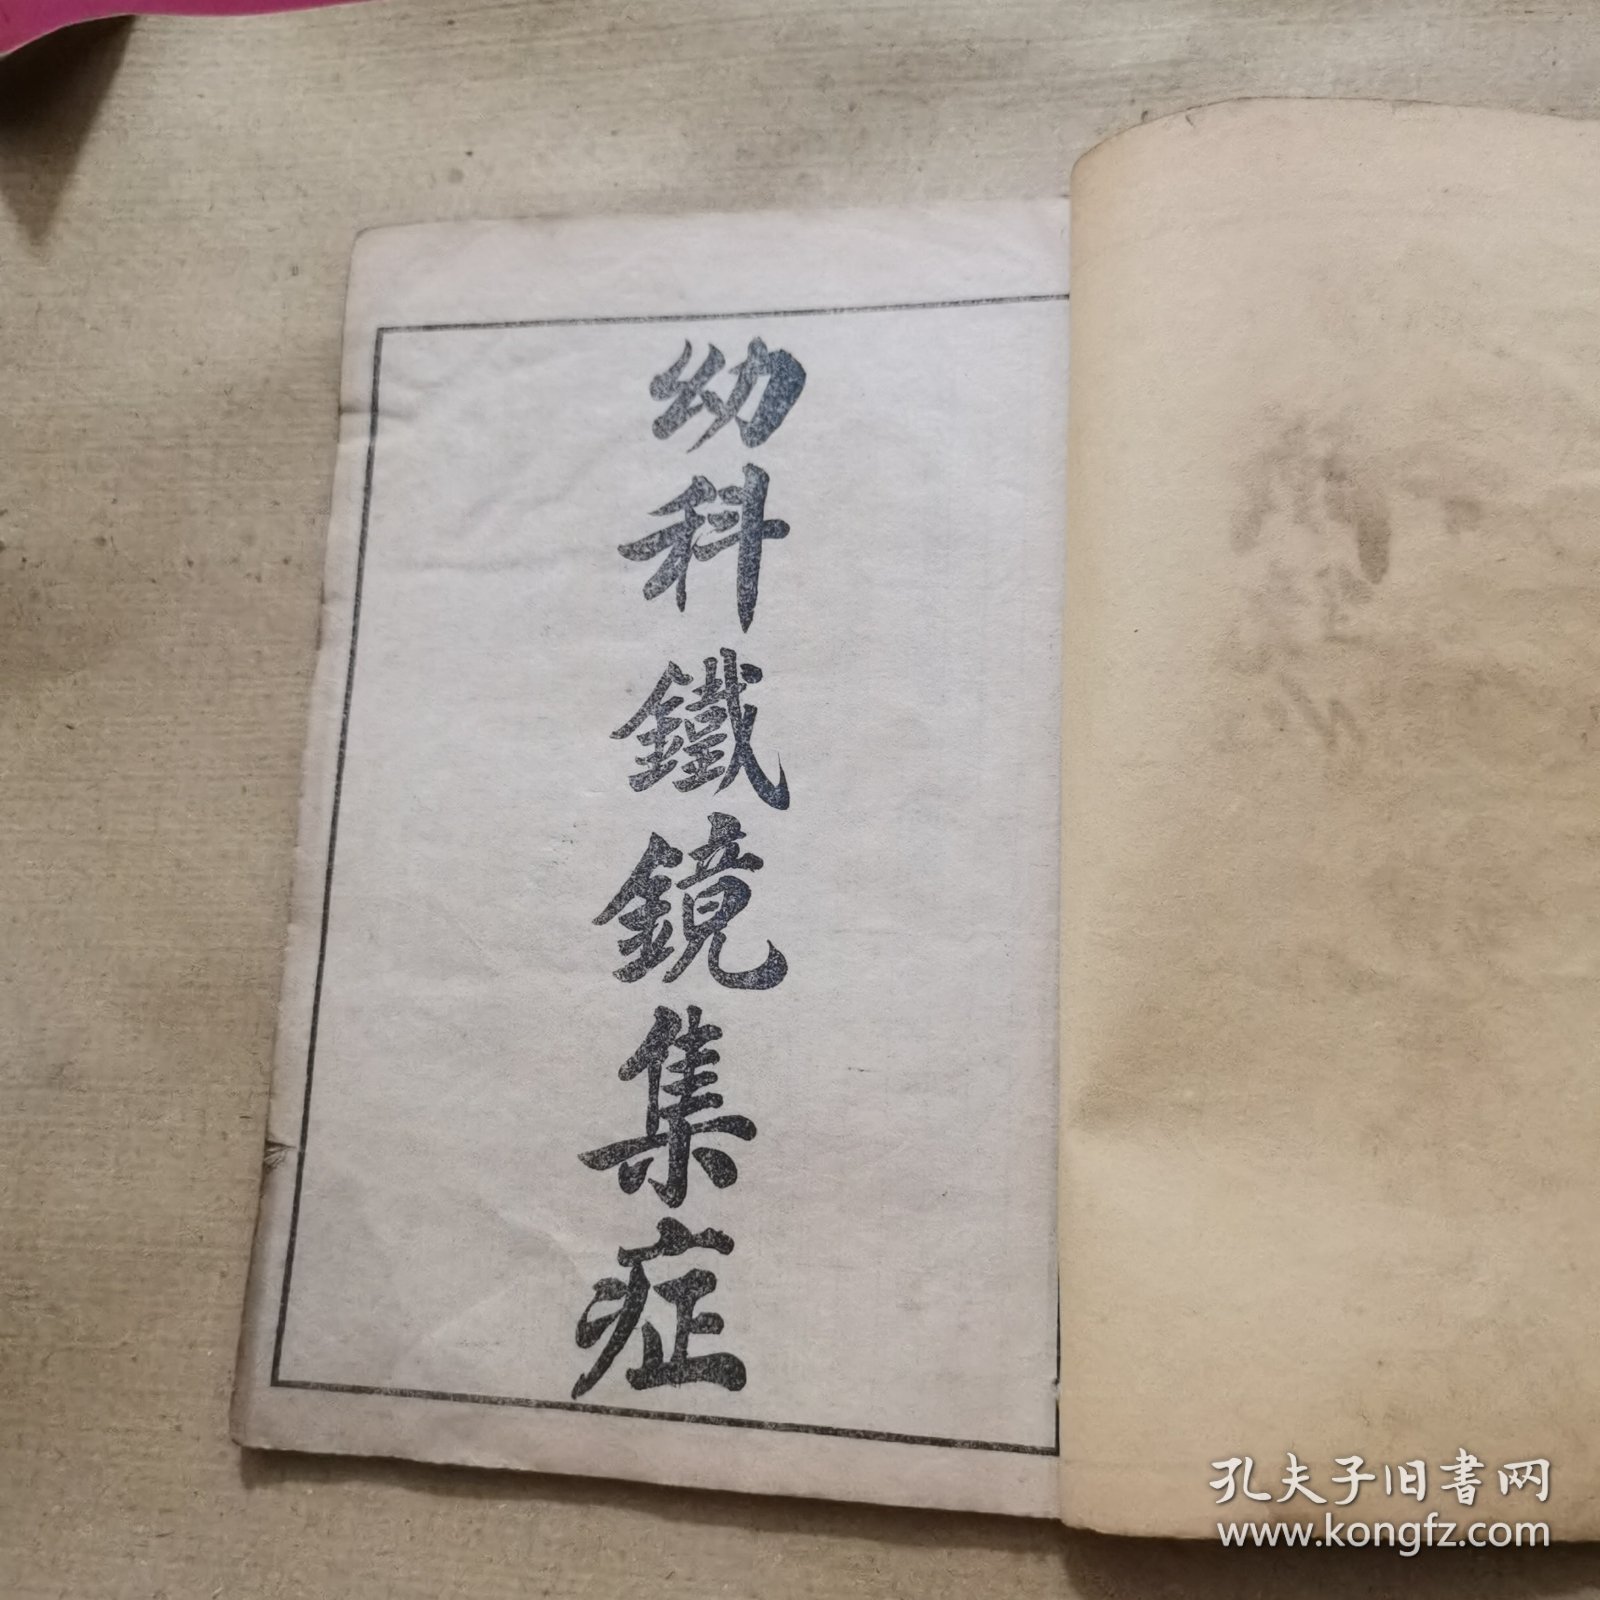 幼科鐵鏡集症
孔夫子旧书网
www.kongfz.com